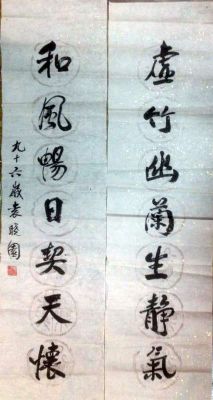 虚竹幽蘭生静氣
和風暢日契天懷
九十六歲袁曉園